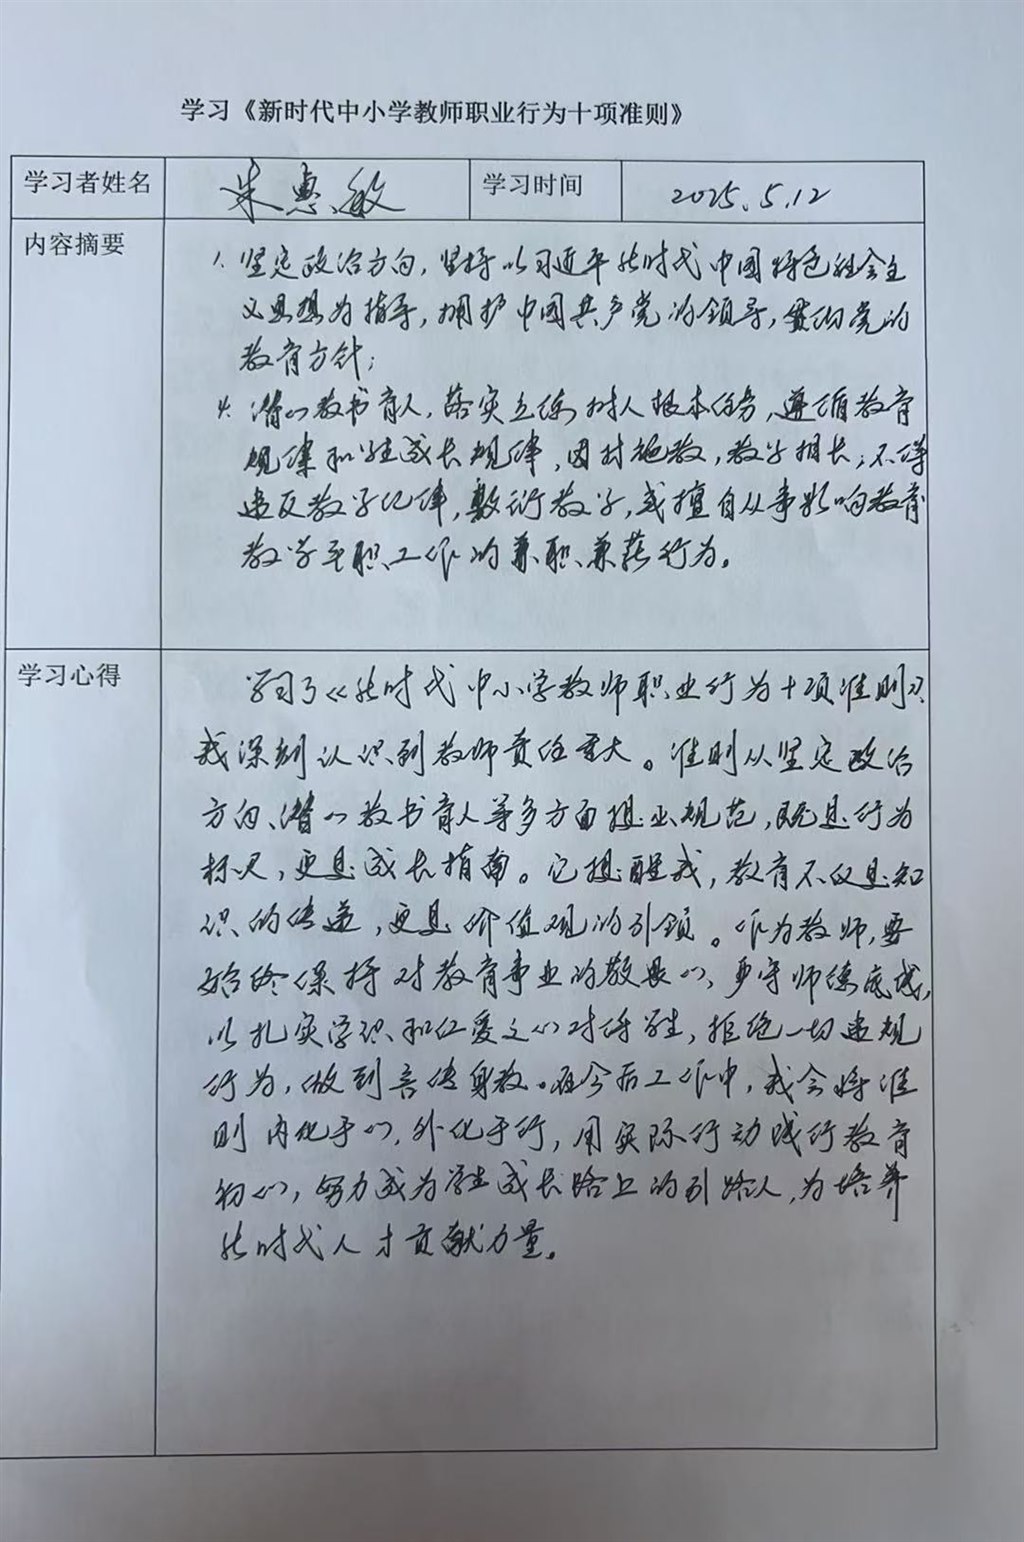 学习《新时代中小学教师职业行为十项准则》
学习者姓名 朱惠敏 学习时间 2025.5.12
内容摘要
1. 坚定政治方向，坚持以习近平新时代中国特色社会主
义思想为指导，拥护中国共产党的领导，贯彻党的
教育方针；
4. 潜心教书育人，落实立德树人根本任务，遵循教育
规律和学生成长规律，因材施教，教学相长；不得
违反教学纪律，敷衍教学，或擅自从事影响教育
教学本职工作的兼职兼薪行为。
学习心得
学习了《新时代中小学教师职业行为十项准则》，
我深刻认识到教师责任重大。准则从坚定政治
方向、潜心教书育人等多方面提出规范，既是行为
标尺，更是成长指南。它提醒我，教育不仅是知
识的传递，更是价值观的引领。作为教师，要
始终保持对教育事业的敬畏心，严守师德底线，
以扎实学识和仁爱之心对待学生，拒绝一切违规
行为，做到言传身教。在今后工作中，我会将准
则内化于心，外化于行，用实际行动践行教育
初心，努力成为学生成长路上的引路人，为培养
新时代人才贡献力量。